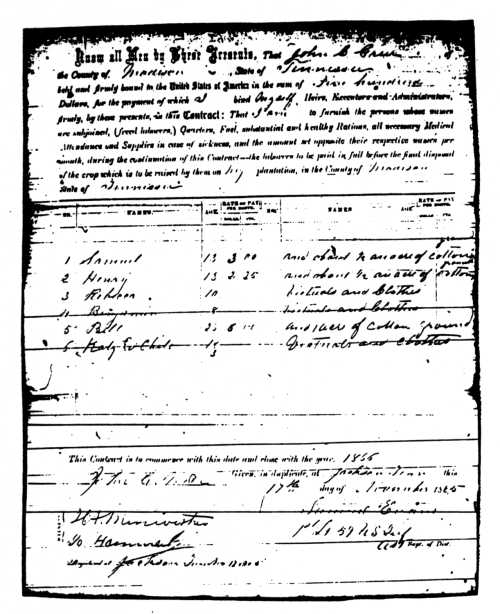 Know all Men by These Presents, That John C
the County of Madison , State of Tennessee
held and firmly bound to the United States of America in the sum of Five hundred
Dollars, for the payment of which I bind Myself Heirs, Executors and Administrators,
firmly, by these presents, in this Contract: That I am to furnish the persons whose names
are subjoined, (freed laborers,) Quarters, Fuel, substantial and healthy Rations, all necessary Medical
Attendance and Supplies in case of sickness, and the amount set opposite their respective names per
month, during the continuation of this Contract—the laborers to be paid in full before the final disposal
of the crop which is to be raised by them on my plantation, in the County of Madison
State of Tennessee
NO. NAMES AGE RATE OF PAY PER MONTH. NO. NAMES AGE RATE OF PAY PER MONTH.
1 Samuel 13 3 00 and about ½ an acre of cotton ground
2 Henry 13 2 25 and about ½ an acre of cotton
3 10 Victuals and Clothes
4 Benjamin 8 Victuals and Clothes
5 Bill 6 and acre of Cotton ground
6 & Child Victuals and Clothes
This Contract is to commence with this date and close with the year. 1865
Given, in duplicate, at Jackson Tenn this
17th day of November 1865
Samuel
1st Lt 59 U S Inf
Registered at Jackson